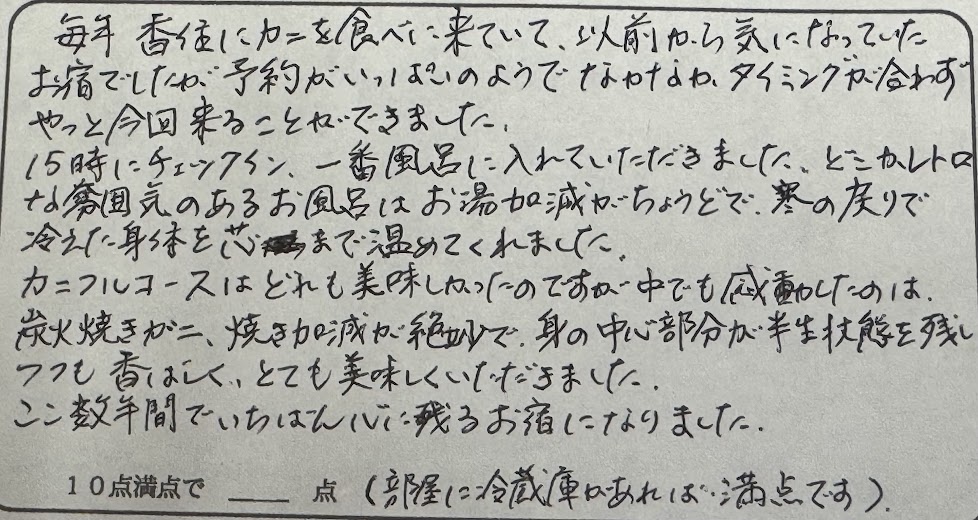 毎年 香住にカニを食べに来ていて、以前から気になっていた
お宿でしたが予約がいっぱいのようでなかなか、タイミングが合わず
やっと今回来ることができました。
15時にチェックイン、一番風呂に入れていただきました、どこかレトロ
な雰囲気のあるお風呂はお湯加減がちょうどで、寒の戻りで
冷えた身体を芯まで温めてくれました。
カニフルコースはどれも美味しかったのですが中でも感動したのは、
炭火焼きガニ、焼き加減が絶妙で、身の中心部分が半生状態を残し
つつも香ばしく、とても美味しくいただきました。
ここ数年間でいちばん心に残るお宿になりました。
10点満点で ____ 点 (部屋に冷蔵庫があれば満点です)